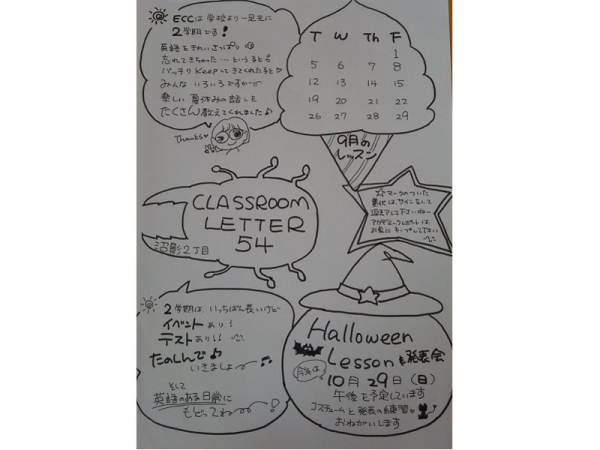 ECCは学校より一足先に
2学期です!
英語をきれいさっぱり
忘れてきちゃった…というSも
バッチリKeepしてきてくれたSも
みんないろいろですが〜
楽しい夏休みの話しも
たくさん教えてくれました♪
Thanks♡
T W Th F
1
5 6 7 8
12 13 14 15
19 20 21 22
26 27 28 29
9月の
レッスン
CLASSROOM
LETTER
54
沼影2丁目
☆マークのついた
サインをして
お家にキープして下さい
2学期は、いっちばん長いけど
イベントあり!
テストあり!!
たのしんで♪
いきましょー
そして
英語のある日常に
もどってねー!
Halloween
Lesson&発表会
今年は
10月29日(日)
午後を予定しています
コスチュームと発表の練習を
おねがいします